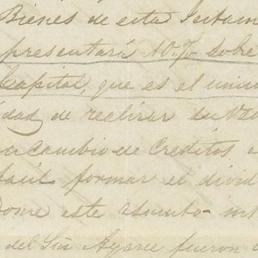 Bienes de esta Intam
presentará A.V.S. sobre
Capital, que es el unic
dad de realizar en Va
cambio de Creditos a
facil formar el divid
este asunto
del Sr. Ayarce fueron